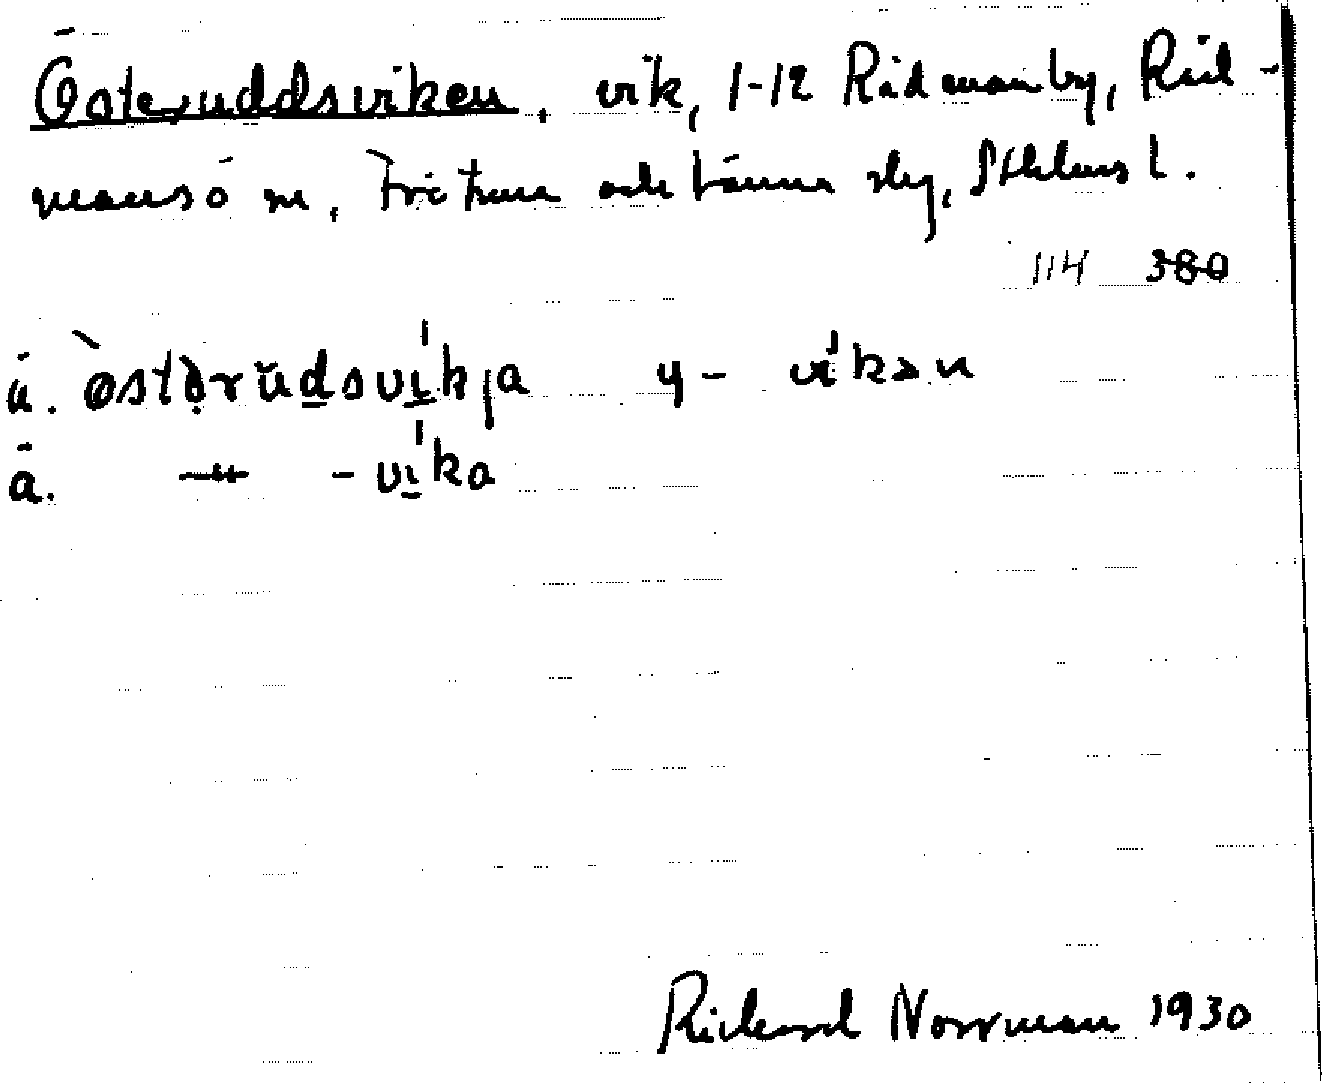 Österuddsviken, vik, 1-12 Rådmanby, Råd-
mansö sn, Frötuna och Länna skg, Sthlms l.
114 380
u. östərŭdsvikja y - vikən
a. -"- - vika
Rickard Norrman 1930